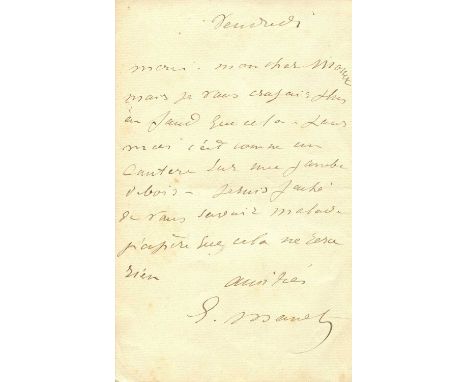 Vendredi
merci - mon cher
mais je vous croyais plus
en fond que cela - pour
moi c'est comme un
cautère sur une jambe
de bois - je suis fâché
de vous savoir malade
j'espère que cela ne sera
rien
amitiés
E. Manet